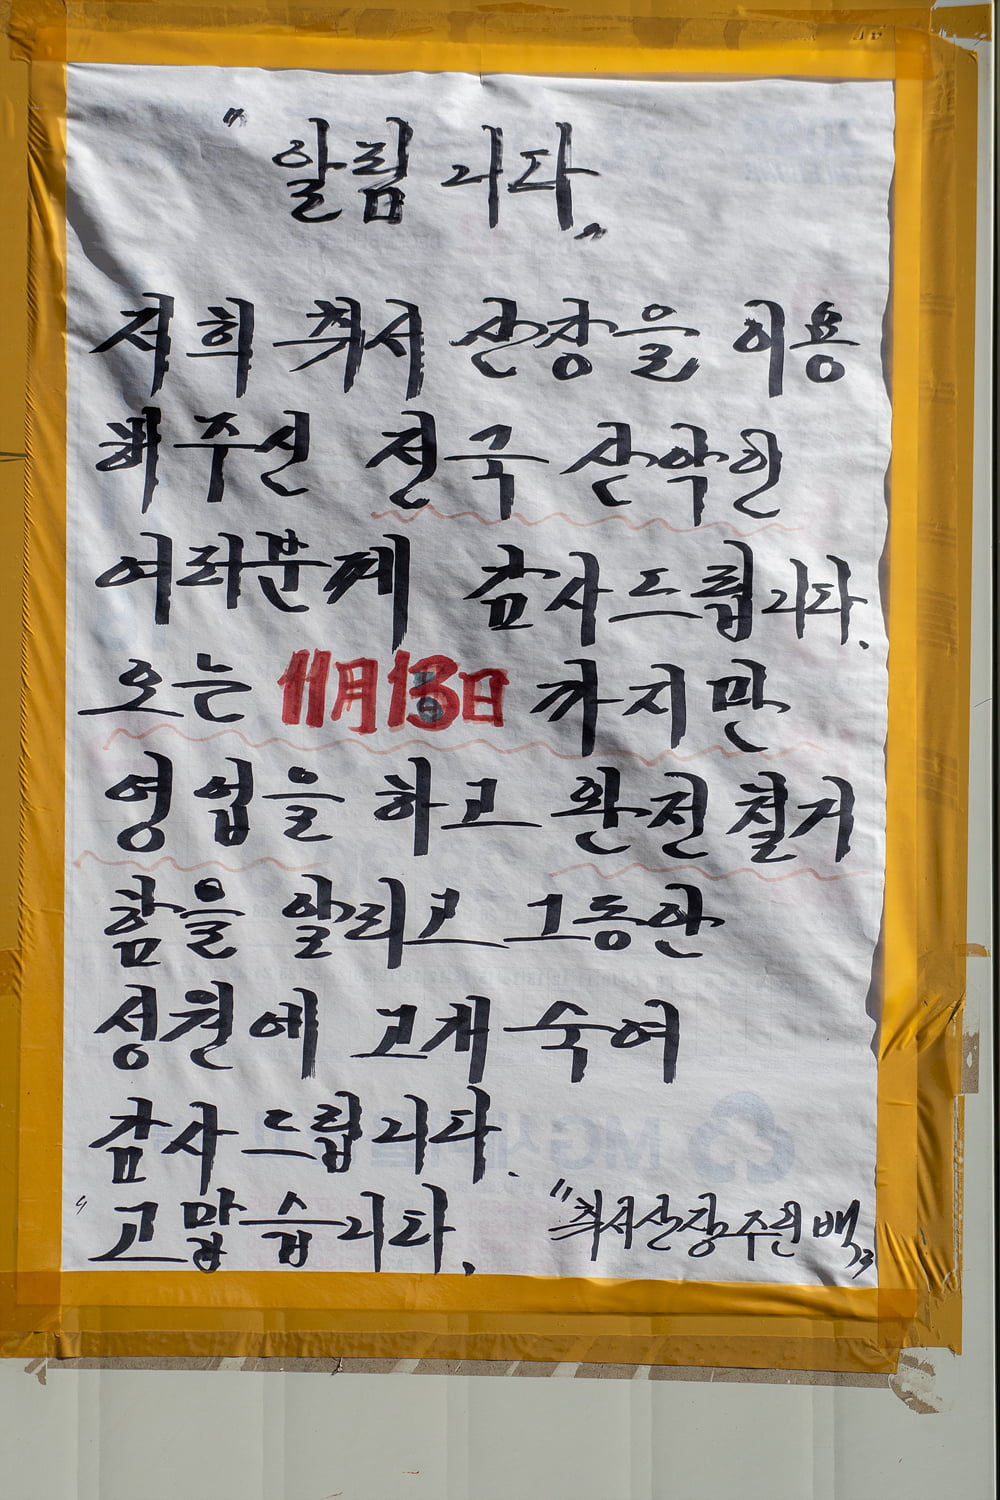 "알림니다"
저희 취서 산장을 이용
해주신 전국 산악인
여러분께 감사드립니다.
오는 11月13日 까지만
영업을 하고 완전철거
함을 알리고 그동안
성원에 고개숙여
감사드립니다.
"고맙습니다. "취서산장주인 백"
MG새마을금고